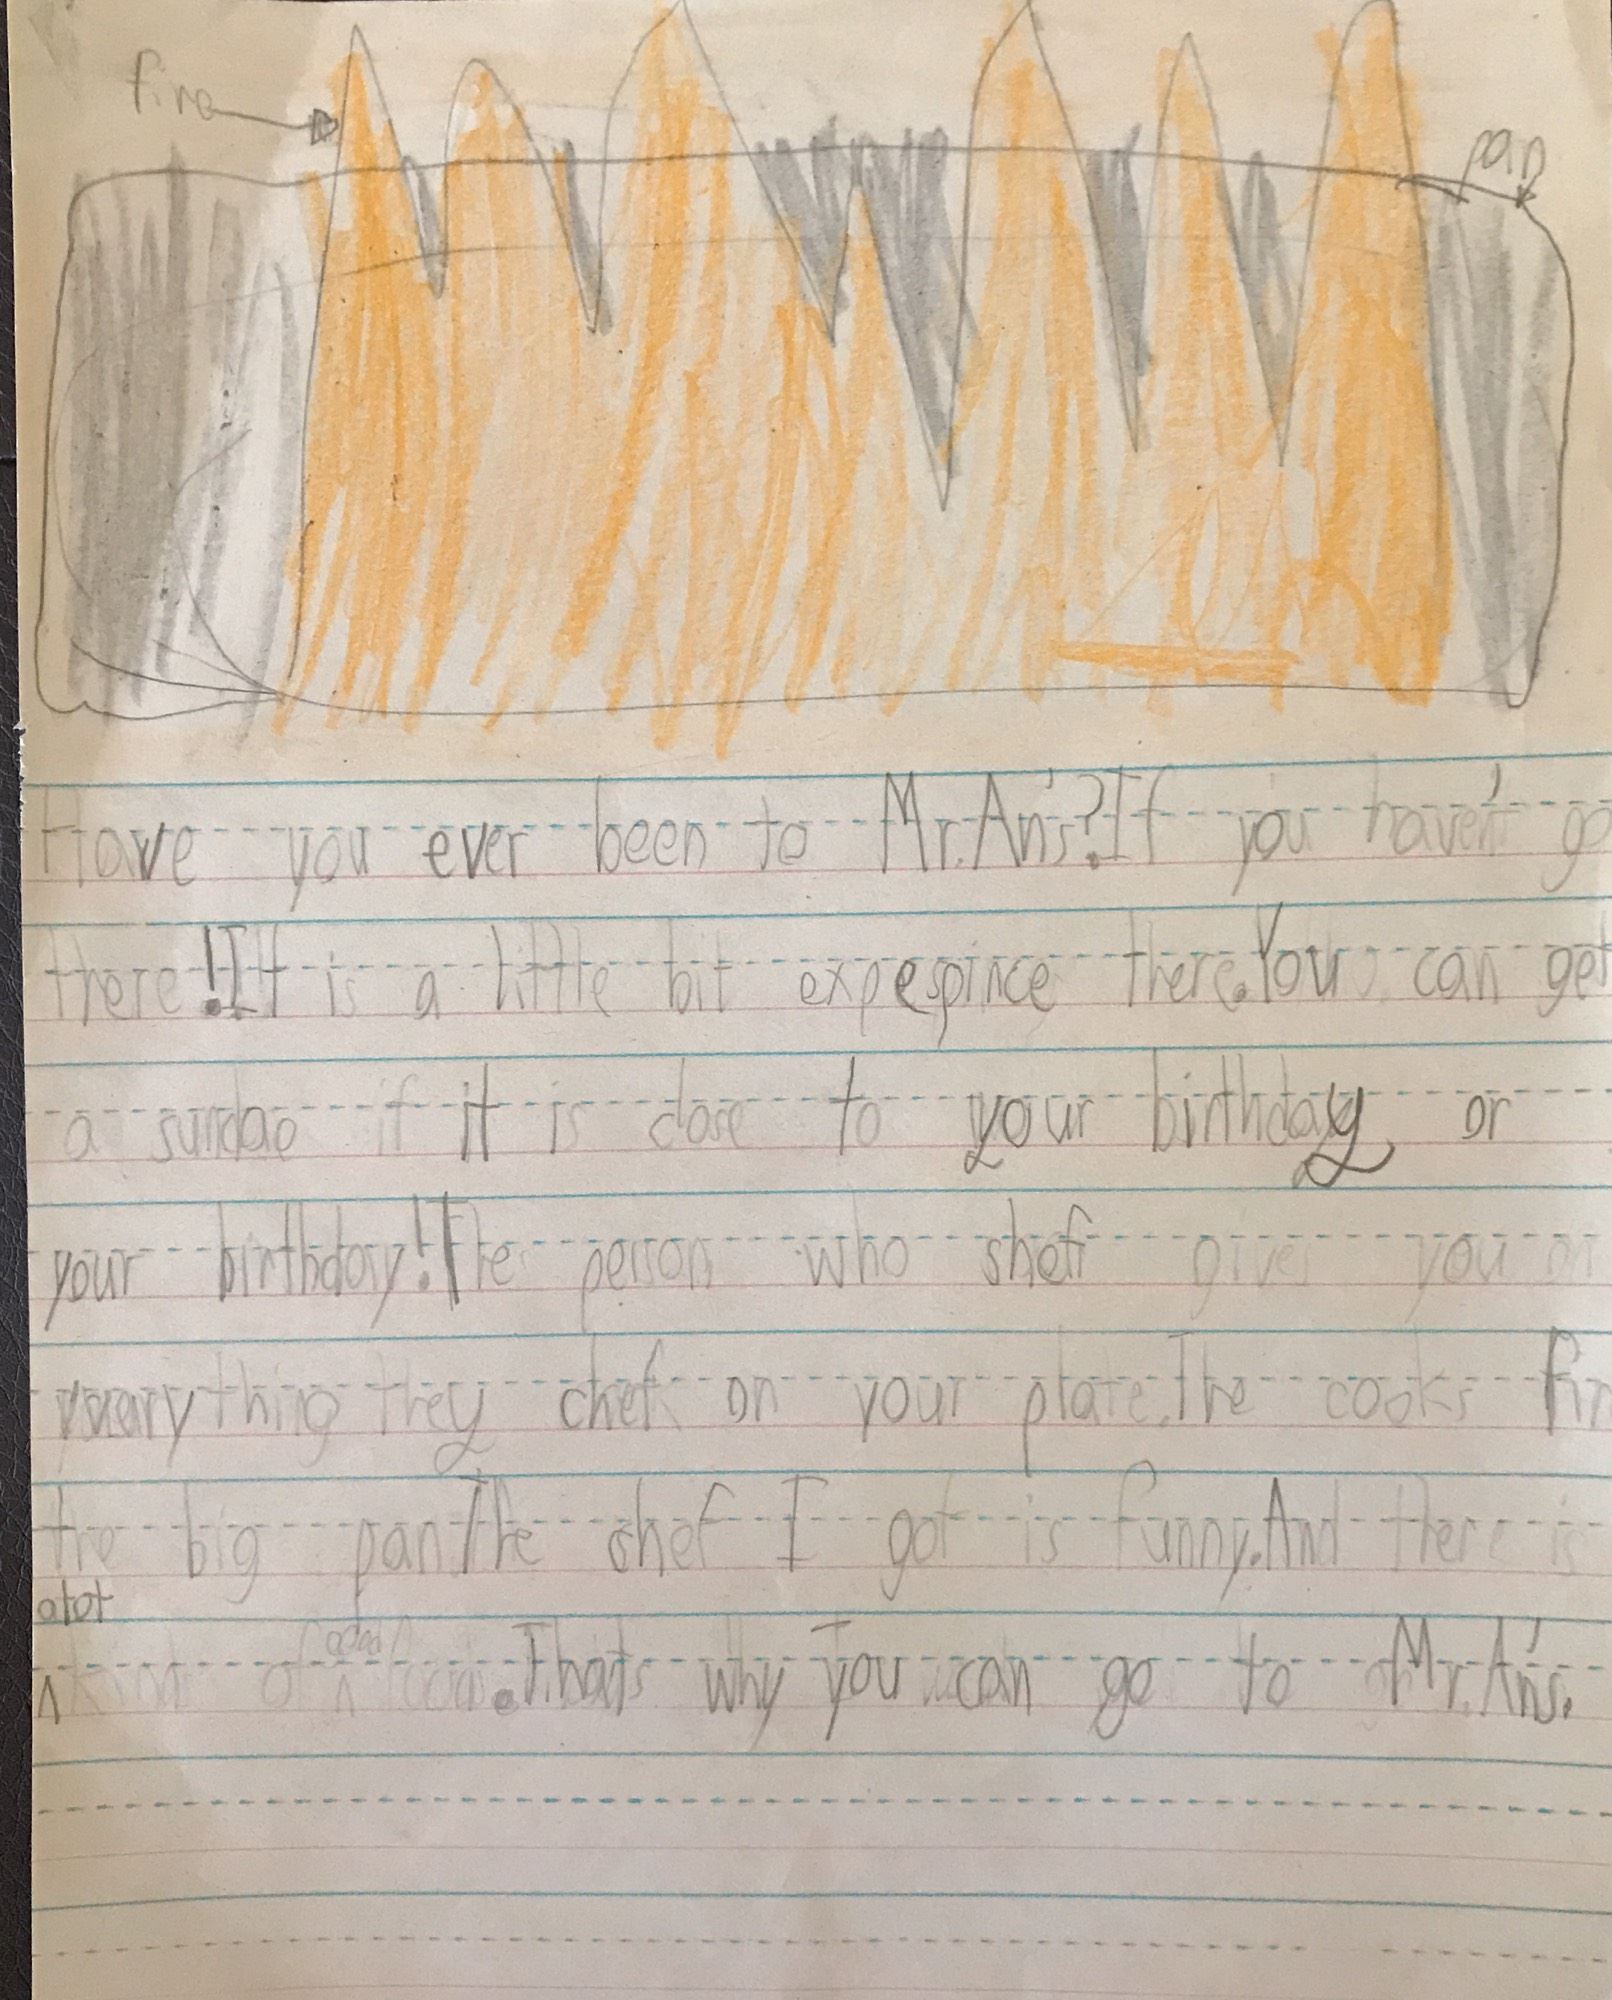 fire
pan
Have you ever been to Mr. An's? If you haven't go
there! It is a little bit expespince there. You can get
a sundae if it is close to your birthday or
your birthday! The person who shef gives you
everything they chef on your plate. The cooks
the big pan. The chef I got is funny. And there is
alot
of good . Thats why You can go to Mr. An's.